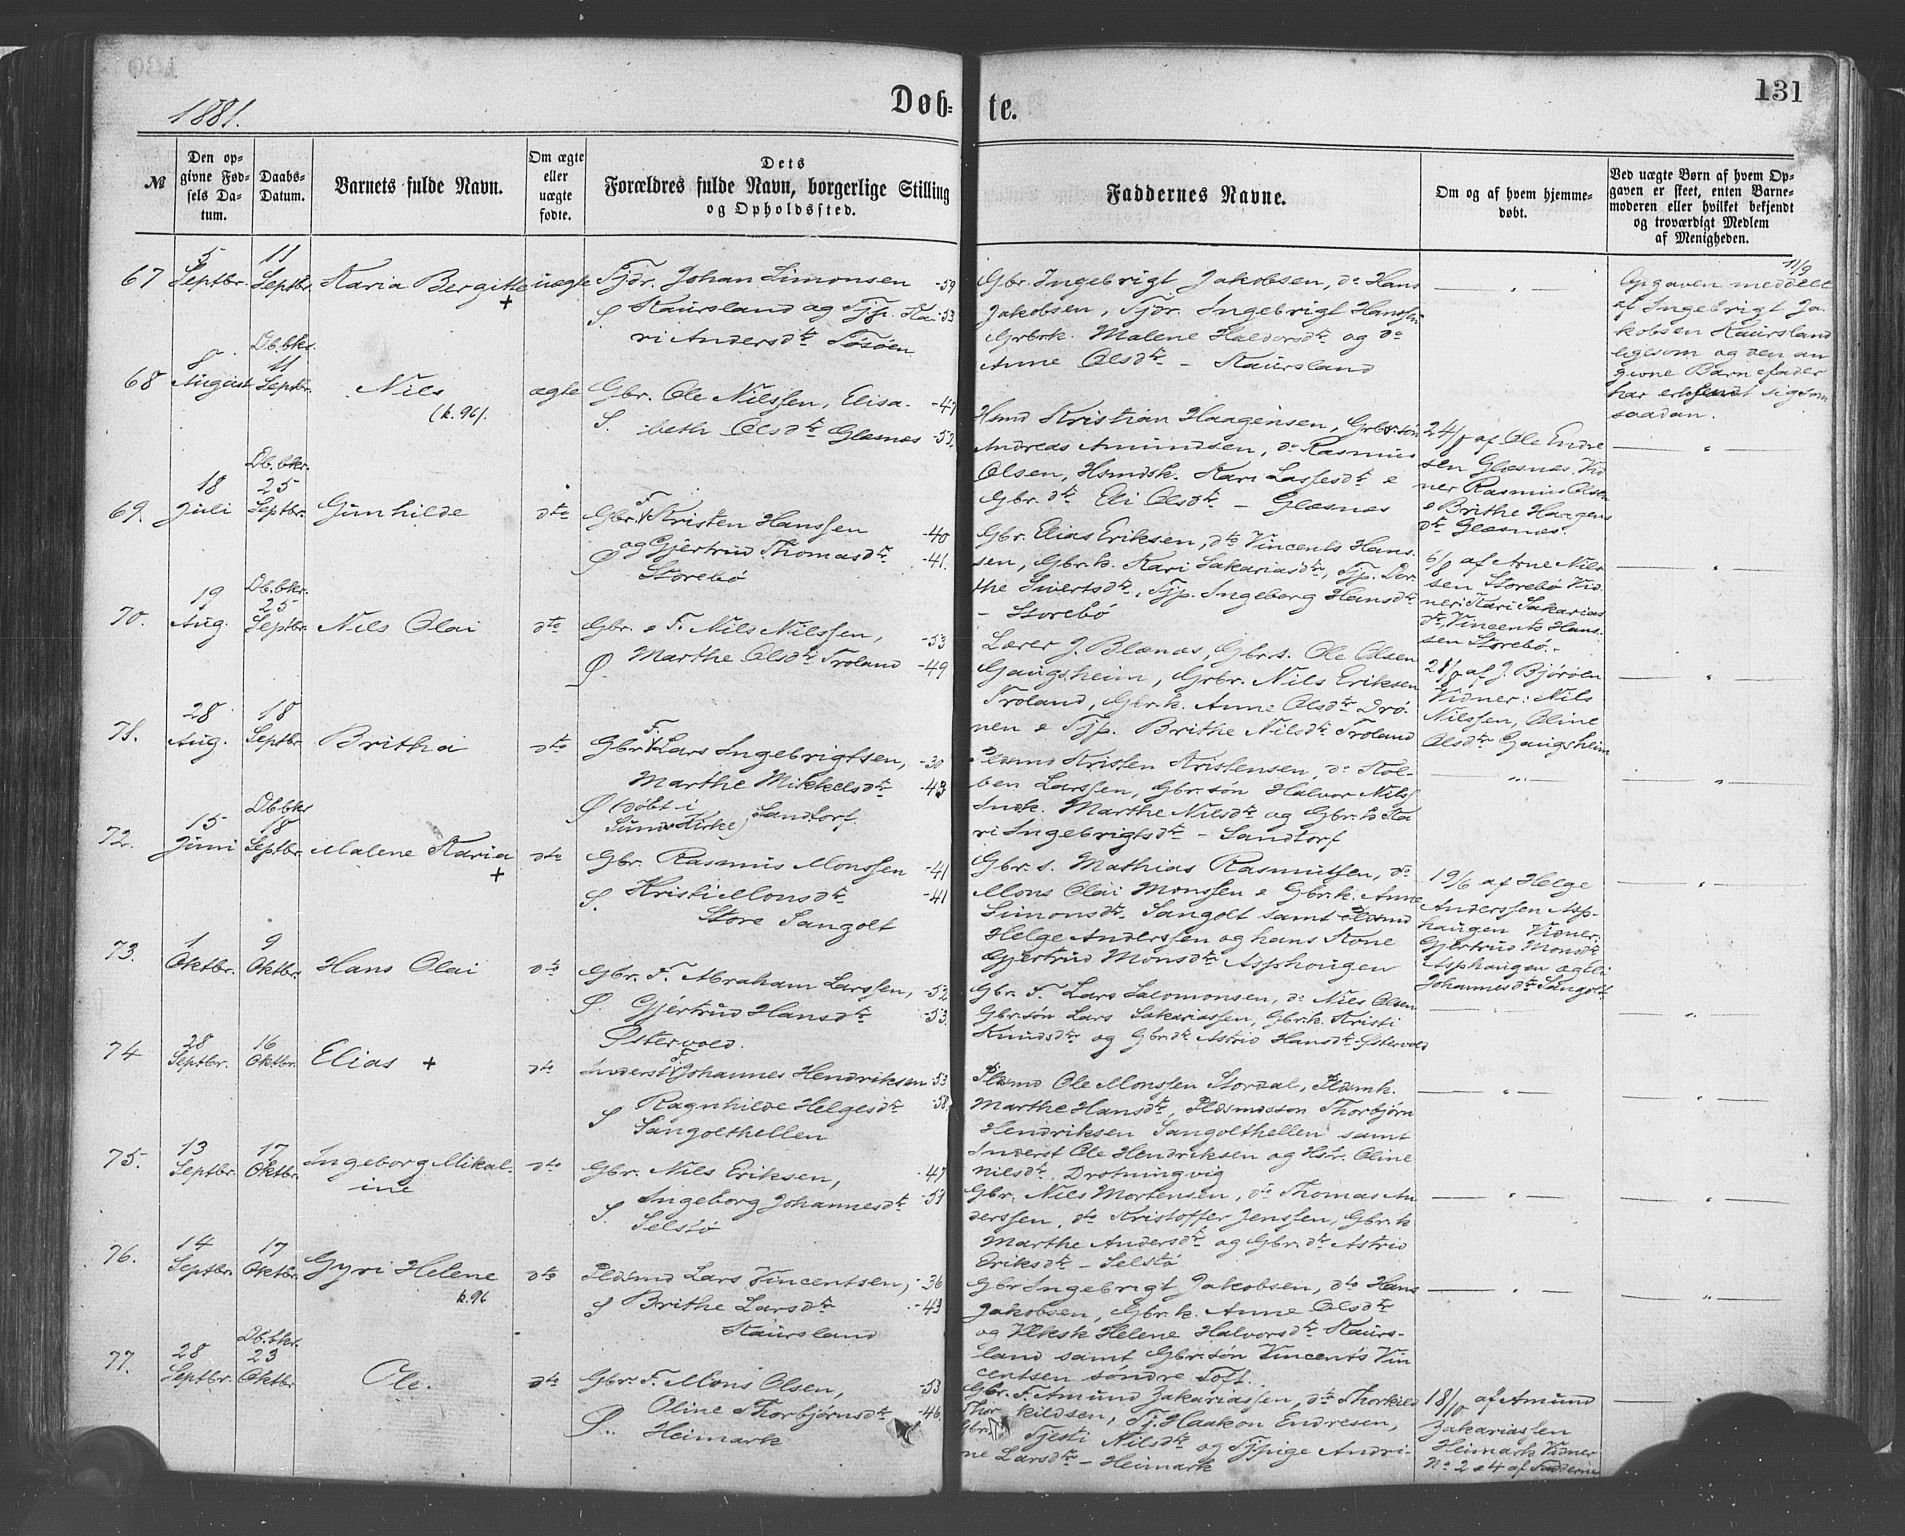 131
1881.
Døb-
te.
№
Den op-
givne Fød-
sels Da-
tum.
Daabs-
Datum.
Barnets fulde Navn.
Om ægte
eller
uægte
fødte.
Dets
Forældres fulde Navn, borgerlige Stilling
og Opholdssted.
Faddernes Navne.
Om og af hvem hjemme-
døbt.
Ved uægte Børn af hvem Op-
gaven er skeet, enten Barne-
moderen eller hvilket bekjendt
og troværdigt Medlem
af Menigheden.
67
5
Septbr.
11
Septbr.
Karia Bergitte
+
uægte
Tjdr. Johan Simonsen -59
S Kaursland og Tjp. Ka- -53
ri Andersdtr Tøsøen
Gbr. Ingebrigt Jakobsen, do Hans
Jakobsen, Tjdr. Ingebrigt Hanssen
Grbrk. Malene Haldorsdtr og do
Anne Olsdtr - Kaursland
11/9
Opgaven meddelt
af Ingebrigt Ja-
kobsen Kaursland
ligesom og den an
givne Barnefader
har erkjendt sig som
saadan.
68
8
August
Db.bks.
11
Septbr.
Nils
(k. 96).
ægte
Gbr. Ole Nilssen, Elisa- -47
S. beth Olsdtr Glæsnes -52
Hsmd Kristian Haagensen, Grbr.søn
Andreas Amundsen, do Rasmus
Olsen, Hsmdsk. Kari Lassesdtr &
Gbr. dtr Eli Olsdtr - Glæsnes
24/8 af Ole Endre
sen Glæsnes. Vid
ner Rasmus Olsen
& Brithe Haagens
dtr Glæsnes.
69.
18
Juli
Db.bkr.
25
Septbr.
Gunhilde
dto
Gbr. F. Kristen Hanssen -40
Ø og Gjertrud Thomasdtr -41.
Storebø
Gbr. Elias Eriksen, dto Vincents Hans-
sen, Gbr.k. Kari Sakariasdtr, Tjp. Dor-
the Sivertsdtr, Tjp. Ingeborg Hansdtr
- Storebø
6/8 af Arne Nils-
sen Storebø Vid
ner: Kari Sakarias
dtr, Vincents Hans-
sen Storebø.
70.
19
Aug.
Db.bkr.
25
Septbr.
Nils Olai
dto
Gbr. & F. Nils Nilssen, -53
Ø. Marthe Olsdtr Troland -49
Lærer J. Blænes, Gbr.s. Ole Olsen
Gaugsheim, Grbr. Nils Eriksen
Troland, Gbr.k. Anne Olsdtr Drø-
nen & Tjp. Brithe Nilsdtr Troland
21/8 af J. Bjørøen
Vidner: Nils
Nilssen, Oline
Olsdtr Gaugsheim
71.
28
Aug.
18
Septbr.
Britha
dto
Gbr. F. Lars Ingebrigtsen, -30
Marthe Mikkelsdtr -43
Ø (døbt i
Sunds Kirke) Sandtorf.
Pldsmd Kristen Kristensen, do Kol-
ben Larssen, Gbr.søn Halvor Nils
Indk. Marthe Nilsdtr og Gbr.k. Ka
ri Ingebrigtsdtr - Sandtorf
72.
15
Juni
Db.bkr
18
Septbr.
Malene Karia
+
dto
Gbr. Rasmus Monssen -41
S. Kristi Monsdtr -41
Store Sangolt
Gbr. s. Mathias Rasmussen, do.
Mons Olai Monssen & Gbr.k. Anne
Simonsdtr. Sangolt samt Pldsmd
Helge Anderssen og hans Kone
Gjertrud Monsdtr Asphougen
19/6 af Helge
Anderssen Asp-
haugen Vidner:
Gjertrud Monsdtr
Asphaugen og Eli
Johannesdtr Sangolt.
73.
1
Oktbr.
9
Oktbr.
Hans Olai
dto
Gbr. F. Abraham Larssen, -52
Ø. Gjertrud Hansdtr -53.
Østervold.
Gbr. F. Lars Salomonsen, do Nils Olsen
Gbr.søn Lars Sakariassen, Gbr.k. Kristi
Knudsdtr og Gbr.dtr Astrid Hansdtr Østervold
74
28
Septbr.
16
Oktbr.
Elias +
dto
Inderst F. Johannes Hendriksen -53
S Ragnhilde Helgesdtr -58
Sangolthellen
Pldsmd Ole Monssen Stordal, Pldsmk.
Marthe Hansdtr, Pldsmdssøn Thorbjørn
Hendriksen Sangolthellen samt
Inderst Ole Hendriksen og Hstr. Oline
Nilsdtr. Drotningvig
75.
13
Septbr.
17
Oktbr.
Ingeborg Mikal-
ine
dto
Gbr. Nils Eriksen, -47
S. Ingeborg Johannesdtr -53
Selstø
Gbr. Nils Mortensen, do Thomas An
derssen, dto Kristoffer Jenssen, Gbr.k
Marthe Andersdtr og Gbr.dtr Astrid
Eriksdtr - Selstø
76.
14
Septbr.
17
Oktbr.
Gyri Helene
k. 96
dto
Pldsmd Lars Vincentsen, -36
S Brithe Larsdtr -43
Kaursland
Gbr Ingebrigt Jakobsen, dto Hans
Jakobsen, Gbr.k. Anne Olsdtr
og Helene Halvorsdtr Kaurs-
land samt Gbr.søn Vincents Vin
centsen søndre Toft.
77.
28
Septbr.
Db.bkr.
23
Oktbr.
Ole.
dto
Gbr. F. Mons Olsen, -53
Ø. Oline Thorbjørnsdtr -46.
Heimark
Gbr. F. Amund Zakariassen, do Thorkild
Thorkildsen, Tj. Haakon Endresen,
Gbr. Tjesti Nilsdtr og Tjpige Andri-
ne Larsdtr - Heimark
18/10 af Amund
Zakariassen
Heimark Vidner
No 2 & 4 af Fadderne